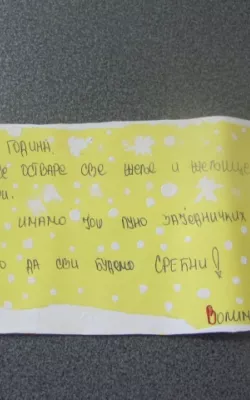 ГОДИНА
СЕ ОСТВАРЕ СВЕ ЖЕЉЕ И ЖЕЉИЦЕ
ИМАМО ЈОШ ПУНО ЗАЈЕДНИЧКИХ
ДА СВИ БУДЕМО СРЕЋНИ!